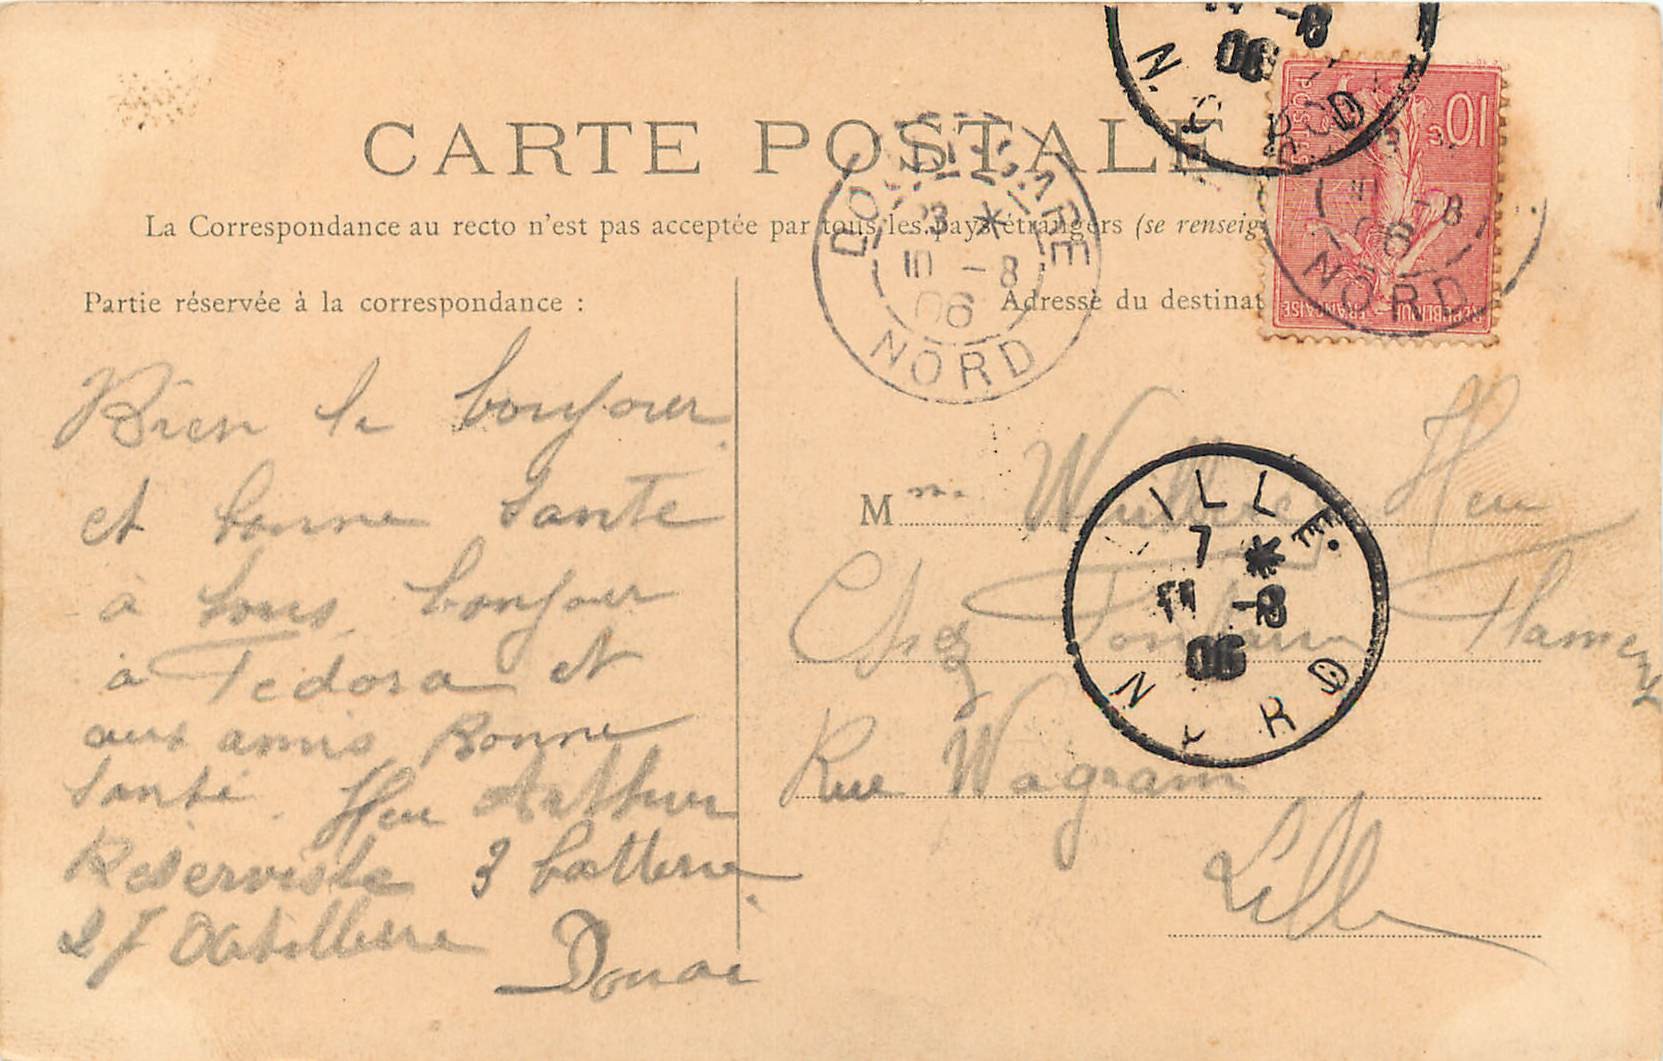 CARTE POSTALE
La Correspondance au recto n'est pas acceptée par tous les pays étrangers (se renseig
Partie réservée à la correspondance :
Bien le bonjour
et bonne sante
à tous bonjour
à Fedora et
aux amis Bonne
santé. Heu Arthur
Reserviste 3 batterie
27 Artillerie
Douai
Adresse du destinat
Mme Heu
Chez Flament
Rue Wagram
Lille
10c
POSTES
REPUBLIQUE FRANÇAISE
3 *
10 -8
06
NORD
10 -8
06
NORD
LILLE.
7 *
11 -8
06
NORD
11 -8
06
NORD